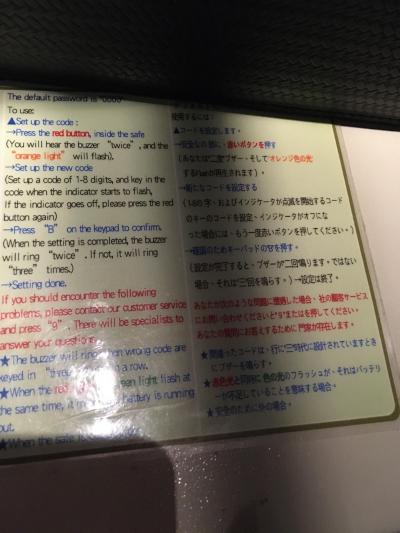 The default password is "0000"
To use:
▲Set up the code :
→Press the red button, inside the safe
(You will hear the buzzer "twice", and the
"orange light" will flash).
→Set up the new code
(Set up a code of 1-8 digits, and key in the
code when the indicator starts to flash,
If the indicator goes off, please press the red
button again)
→Press "B" on the keypad to confirm.
(When the setting is completed, the buzzer
will ring "twice". If not, it will ring
"three" times.)
→Setting done.
If you should encounter the following
problems, please contact our customer service
and press "9". There will be specialists to
answer your questions.
★The buzzer will ring when wrong code are
keyed in "three" in a row.
★When the red light flash at
the same time, it battery is running
out.
★When the safe
使用するには：
▲コードを設定します。
→安全なの 赤いボタンを押す
(あなたは"二度"ブザー、そして"オレンジ色の光"
が再生されます)。
→新たなコードを設定する
(1-8の字、およびインジケータが点滅を開始するコード
のキーのコードを設定、インジケータがオフにな
った場合には、もう一度赤いボタンを押してください。)
→確認のためキーパッドの を押す。
(設定が完了すると、ブザーが"二回"鳴ります。ではない
場合、それは"三"回を鳴らす。)→設定は終了。
あなたが次のような問題に遭遇した場合、社の顧客サービス
にお問い合わせください"9"または を押してください。
あなたの質問にお答えするために 門家が存在します。
★間違ったコードは、行に"三"時代に設計されていますとき
にブザーを鳴らす。
★赤色光と同時に 色の光のフラッシュが、それはバッテリ
ーが不足していることを意味する場合。
★安全のために 場合。